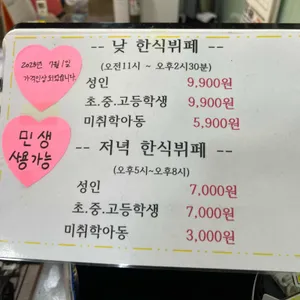 2025년 7월 1일
가격인상 되었습니다.
민생
사용가능
-- 낮 한식뷔페 --
(오전11시 ~ 오후2시30분)
성인 9,900원
초.중.고등학생 9,900원
미취학아동 5,900원
-- 저녁 한식뷔페 --
(오후5시~오후8시)
성인 7,000원
초.중.고등학생 7,000원
미취학아동 3,000원